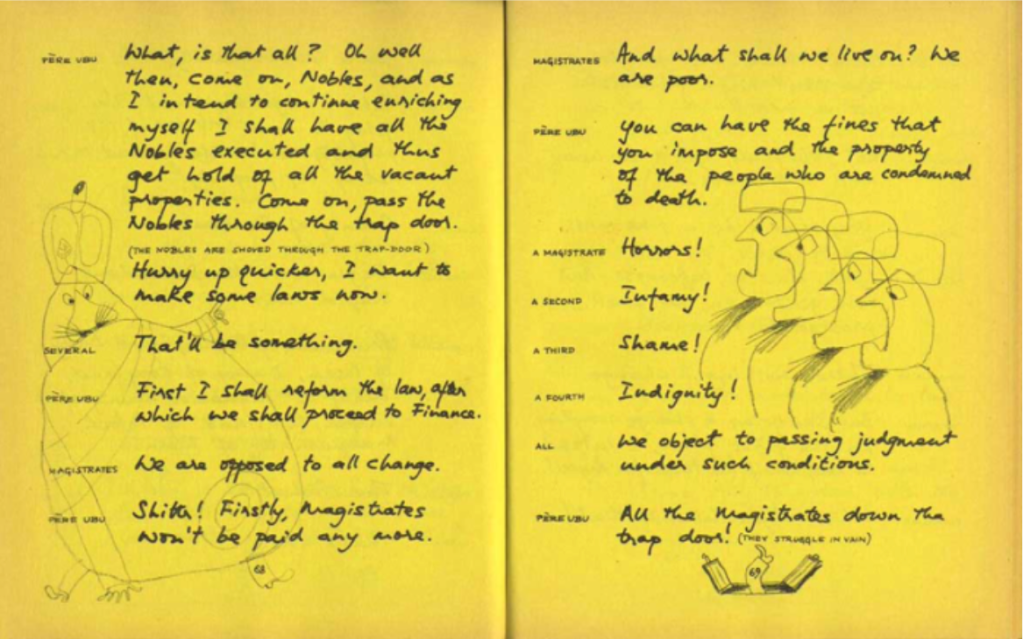 PÈRE UBU What, is that all? Oh well
then, come on, Nobles, and as
I intend to continue enriching
myself I shall have all the
Nobles executed and thus
get hold of all the vacant
properties. Come on, pass the
Nobles through the trap door.
(THE NOBLES ARE SHOVED THROUGH THE TRAP-DOOR)
Hurry up quicker, I want to
make some laws now.
SEVERAL That'll be something.
PÈRE UBU First I shall reform the law, after
which we shall proceed to Finance.
MAGISTRATES We are opposed to all change.
PÈRE UBU Shittr! Firstly, Magistrates
won't be paid any more.
68
MAGISTRATES And what shall we live on? We
are poor.
PÈRE UBU You can have the fines that
you impose and the property
of the people who are condemned
to death.
A MAGISTRATE Horrors!
A SECOND Infamy!
A THIRD Shame!
A FOURTH Indignity!
ALL We object to passing judgment
under such conditions.
PÈRE UBU All the Magistrates down the
trap door! (THEY STRUGGLE IN VAIN)
69